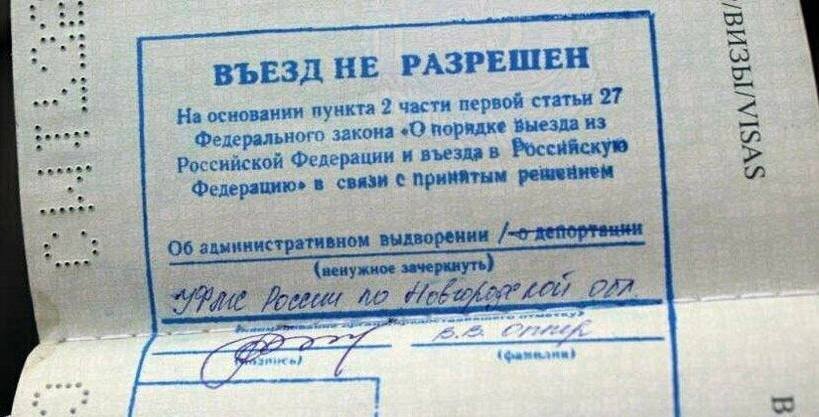 ВЪЕЗД НЕ РАЗРЕШЕН
На основании пункта 2 части первой статьи 27
Федерального закона «О порядке выезда из
Российской Федерации и въезда в Российскую
Федерацию» в связи с принятым решением
Об административном выдворении / о депортации
(ненужное зачеркнуть)
УФМС России по Новгородской обл
(наименование органа, проставившего отметку)
В.В.
(подпись) (фамилия)
/ВИЗЫ/VISAS
В